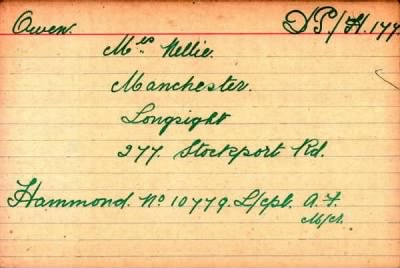 Owen. DP/H.177
Mrs Nellie.
Manchester.
Longsight
277. Stockport Rd.
Hammond. No 10779. L/cpl. A.F.
M/cr.